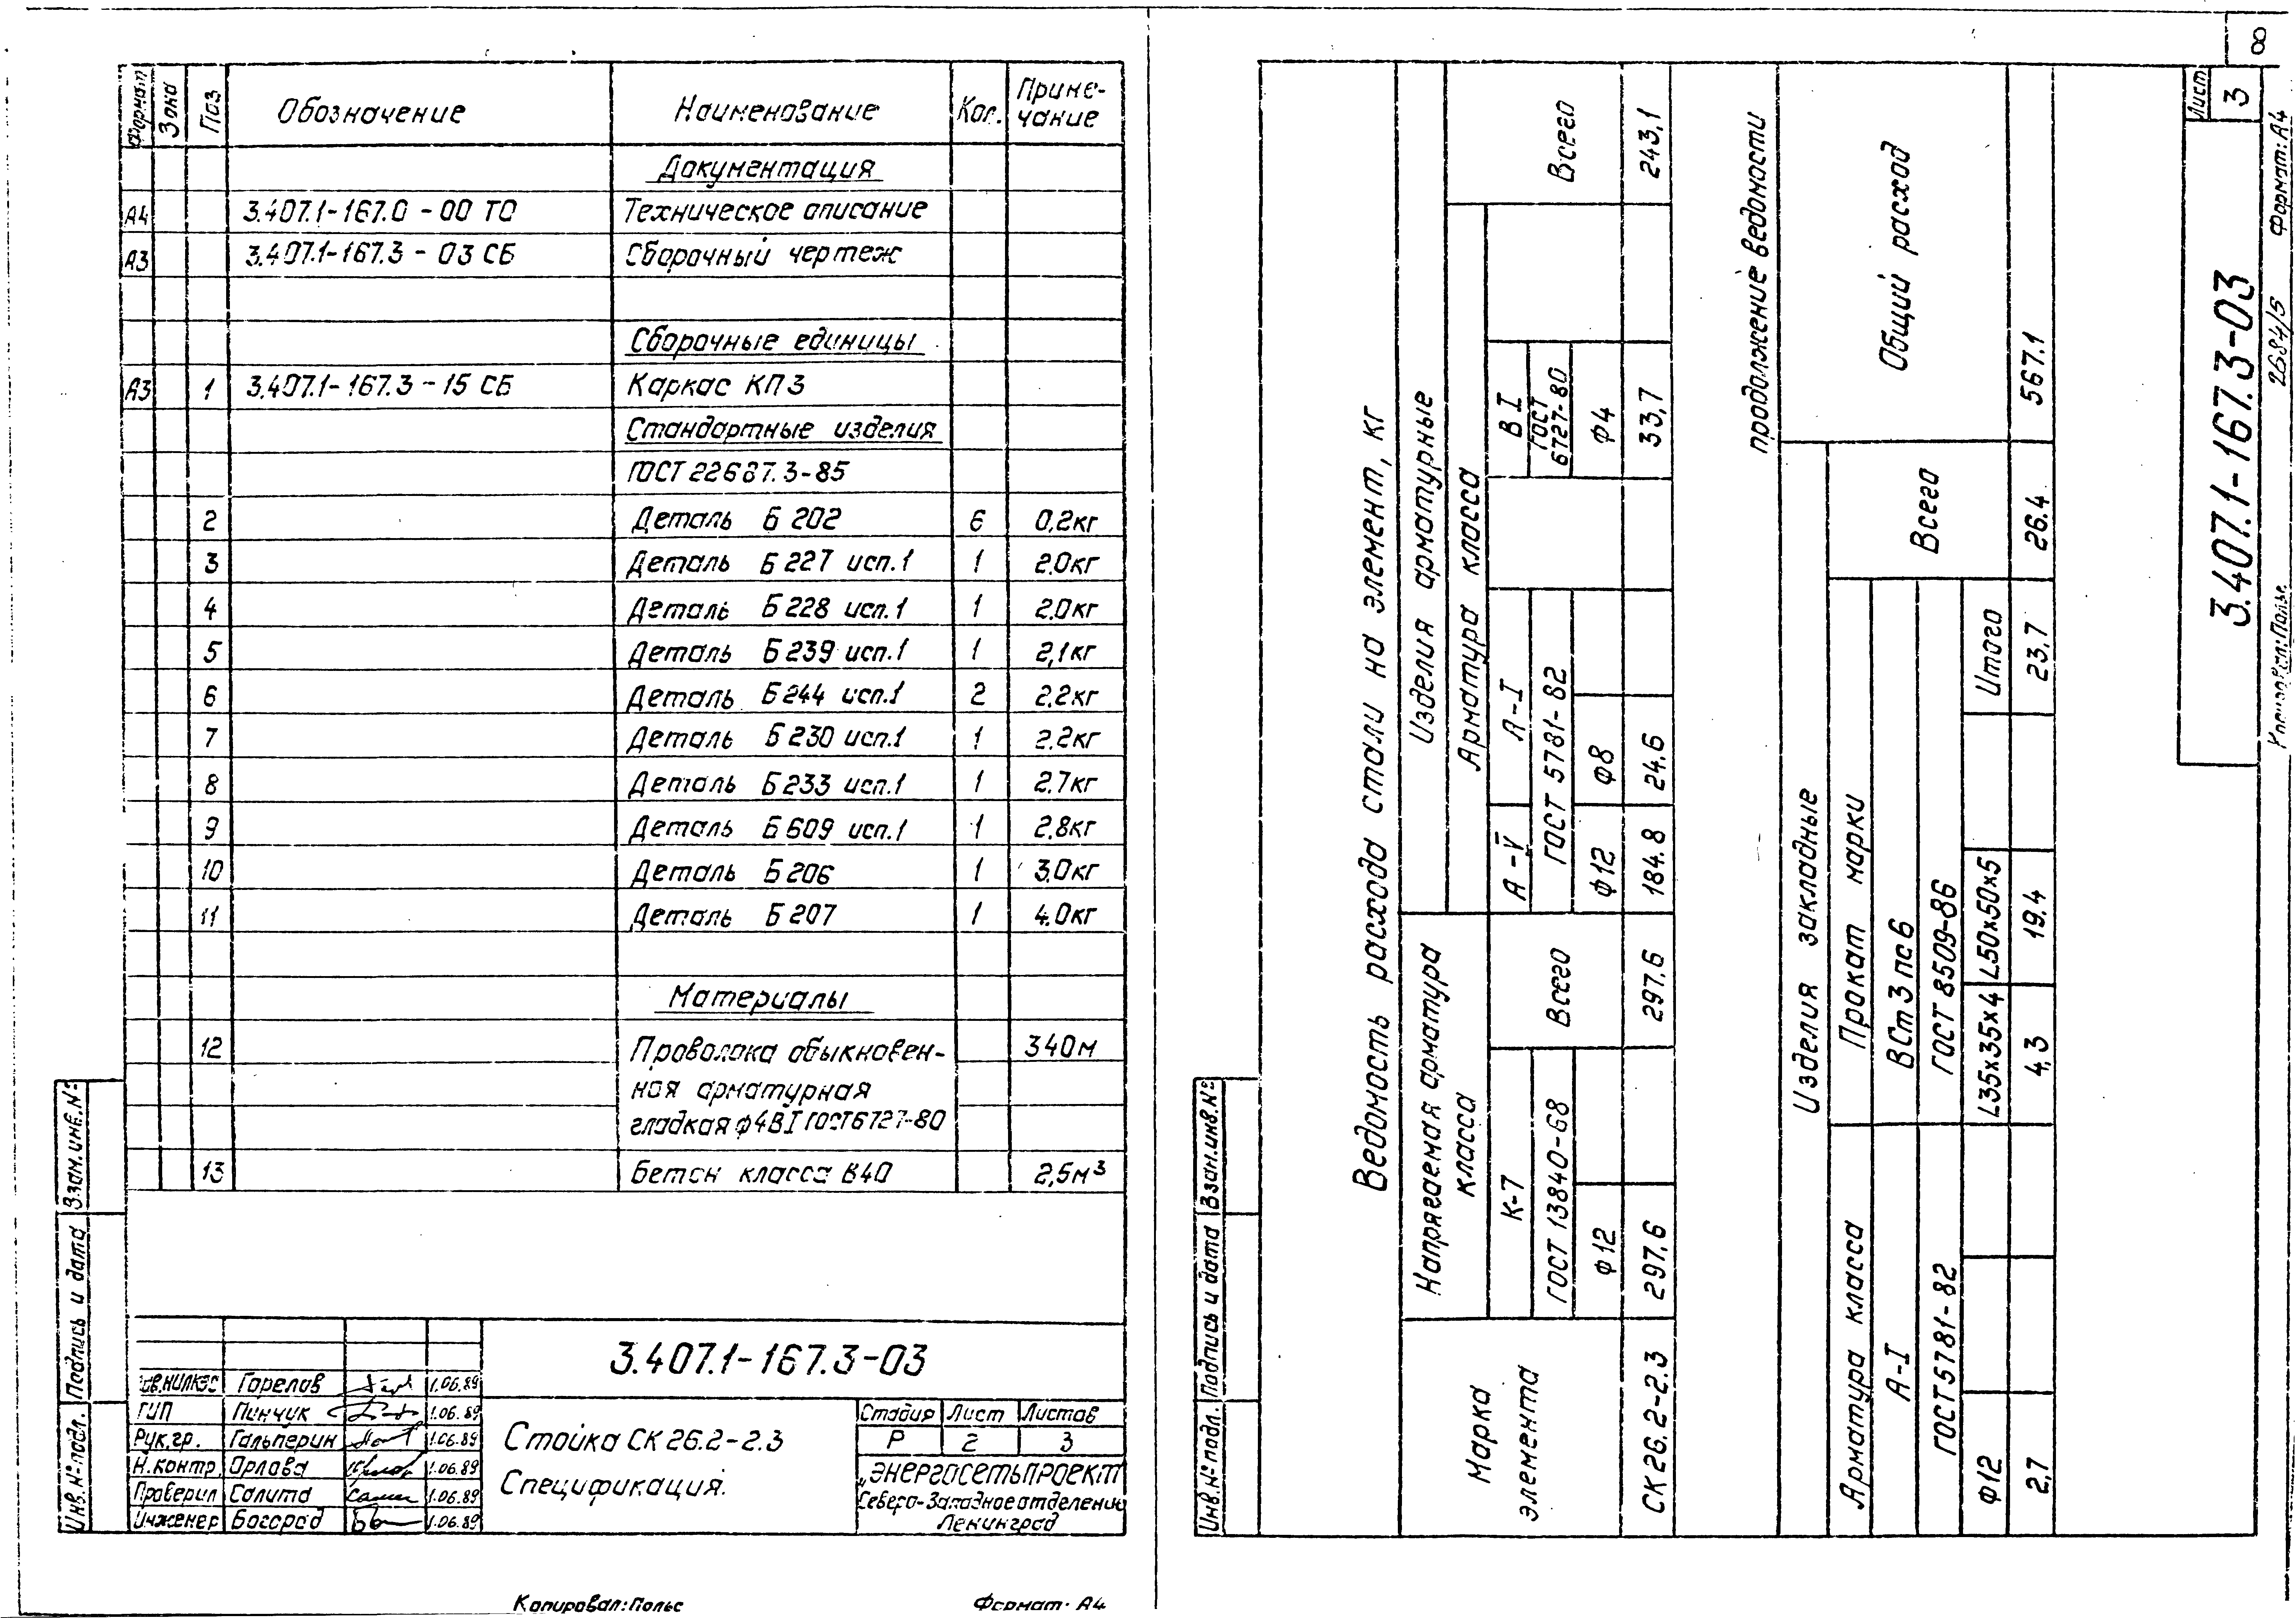 Формат Зона Поз Обозначение Наименование Кол. Приме-
чание
Документация
А4 3.407.1-167.0 - 00 ТО Техническое описание
А3 3.407.1-167.3 - 03 СБ Сборочный чертеж
Сборочные единицы
А3 1 3.407.1-167.3 - 15 СБ Каркас КП3
Стандартные изделия
ГОСТ 22687.3-85
2 Деталь Б 202 6 0,2кг
3 Деталь Б 227 исп.1 1 2.0кг
4 Деталь Б 228 исп.1 1 2.0кг
5 Деталь Б 239 исп.1 1 2,1кг
6 Деталь Б 244 исп.1 2 2,2кг
7 Деталь Б 230 исп.1 1 2.2кг
8 Деталь Б 233 исп.1 1 2.7кг
9 Деталь Б 609 исп.1 1 2.8кг
10 Деталь Б 206 1 3.0кг
11 Деталь Б 207 1 4.0кг
Материалы
12 Проволока обыкновен- 340м
ная арматурная
гладкая ф4ВI ГОСТ6727-80
13 Бетон класса В40 2,5м³
3.407.1-167.3-03
Зав.НИЛКЭС Горелов 1.06.89
ГИП Пинчук 1.06.89
Рук.гр. Гальперин 1.06.89
Н.контр. Орлова 1.06.89
Проверил Салита 1.06.89
Инженер Богорад 1.06.89
Стойка СК 26.2-2.3
Спецификация.
Стадия Лист Листов
Р 2 3
„ЭНЕРГОСЕТЬПРОЕКТ
Северо-Западное отделение
Ленинград
Инв.№ подл. Подпись и дата Взам.инв.№
Копировал: Польс Формат: А4
8
Ведомость расхода стали на элемент, кг
Марка
элемента
Напрягаемая арматура
класса
Изделия арматурные
Арматура класса
К-7 Всего А-V А-I В I Всего
ГОСТ 13840-68 ГОСТ 5781-82 ГОСТ
6727-80
ф12 ф12 ф8 ф4
СК 26.2-2.3 297,6 297,6 184.8 24.6 33,7 243,1
продолжение ведомости
Изделия закладные Общий расход
Арматура класса Прокат марки Всего
А-I ВСт 3 пс6
ГОСТ 5781-82 ГОСТ 8509-86
ф12 L35x35x4 L50x50x5 Итого
2,7 4,3 19.4 23,7 26.4 567.1
Инв.№ подл. Подпись и дата Взам.инв.№
3.407.1-167.3-03
Лист
3
Польс 2684/5 Формат: А4